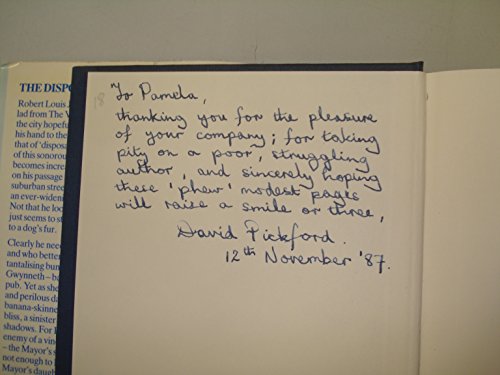 THE DISPO
Robert Louis J
lad from The V
the city hopeful
his hand to the
that of 'disposa
of this sonorou
becomes increa
on his passage
suburban stree
an ever-widenin
Not that he look
just seems to st
to a dog's fur.
Clearly he need
and who better
tantalising bun
Gwynneth – ba
pub. Yet as she
and perilous da
banana-skinne
bliss, a sinister
shadows. For R
enemy of a vind
– the Mayor's s
not enough to
Mayor's daugh
18
To Pamela,
thanking you for the pleasure
of your company; for taking
pity on a poor, struggling
author, and sincerely hoping
these 'phew' modest pages
will raise a smile or three,
David Pickford.
12th November '87.